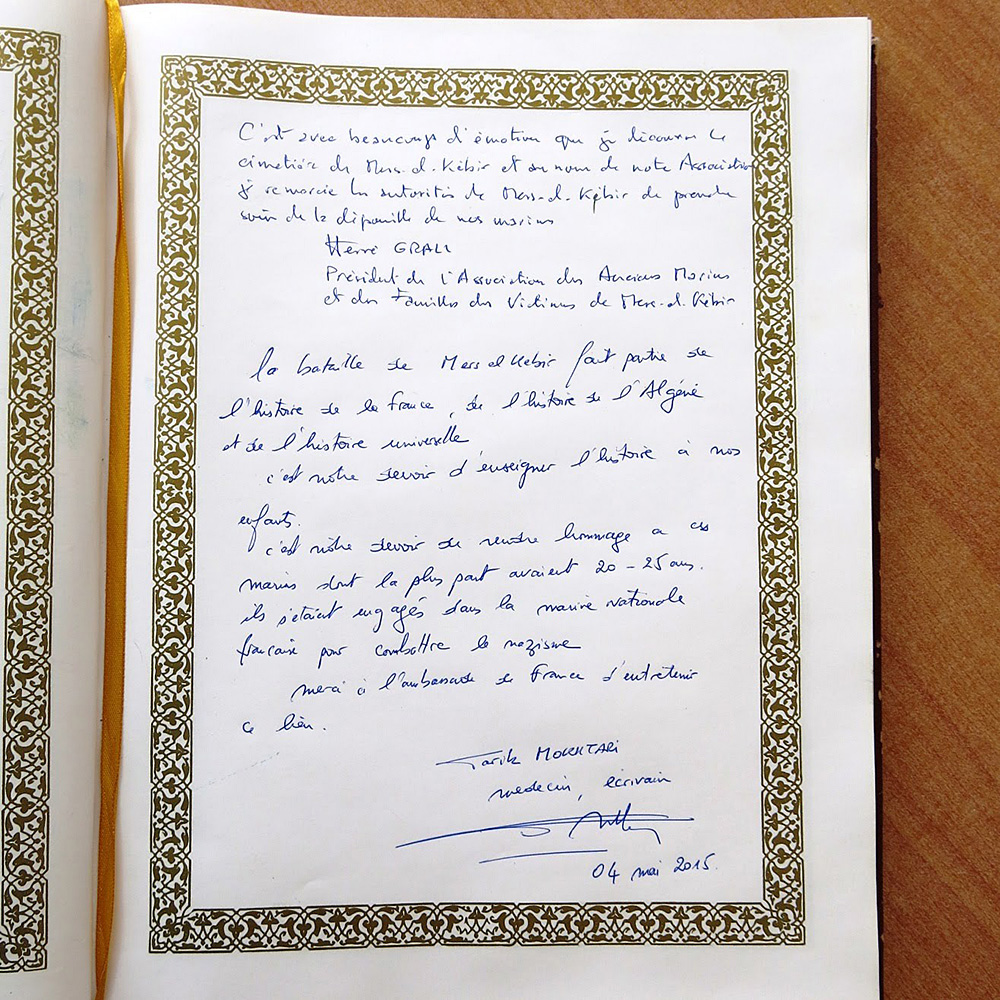 C'est avec beaucoup d'émotion que je découvre le
cimetière de Mers-el-Kébir et au nom de notre Association
je remercie les autorités de Mers-el-Kébir de prendre
soin de la dépouille de nos marins
Hervé GRALL
Président de l'Association des Anciens Marins
et des Familles des Victimes de Mers-el-Kébir
la bataille de Mers el Kebir fait partie de
l'histoire de la france, de l'histoire de l'Algérie
et de l'histoire universelle
c'est notre devoir d'enseigner l'histoire à nos
enfants.
c'est nôtre devoir de rendre hommage a ces
marins dont la plus part avaient 20 - 25 ans.
ils s'étaient engagés dans la marine nationale
française pour combattre le nazisme
merci à l'ambassade de France d'entretenir
ce lieu.
Tarik MOKHTARI
medecin, écrivain
04 mai 2015.